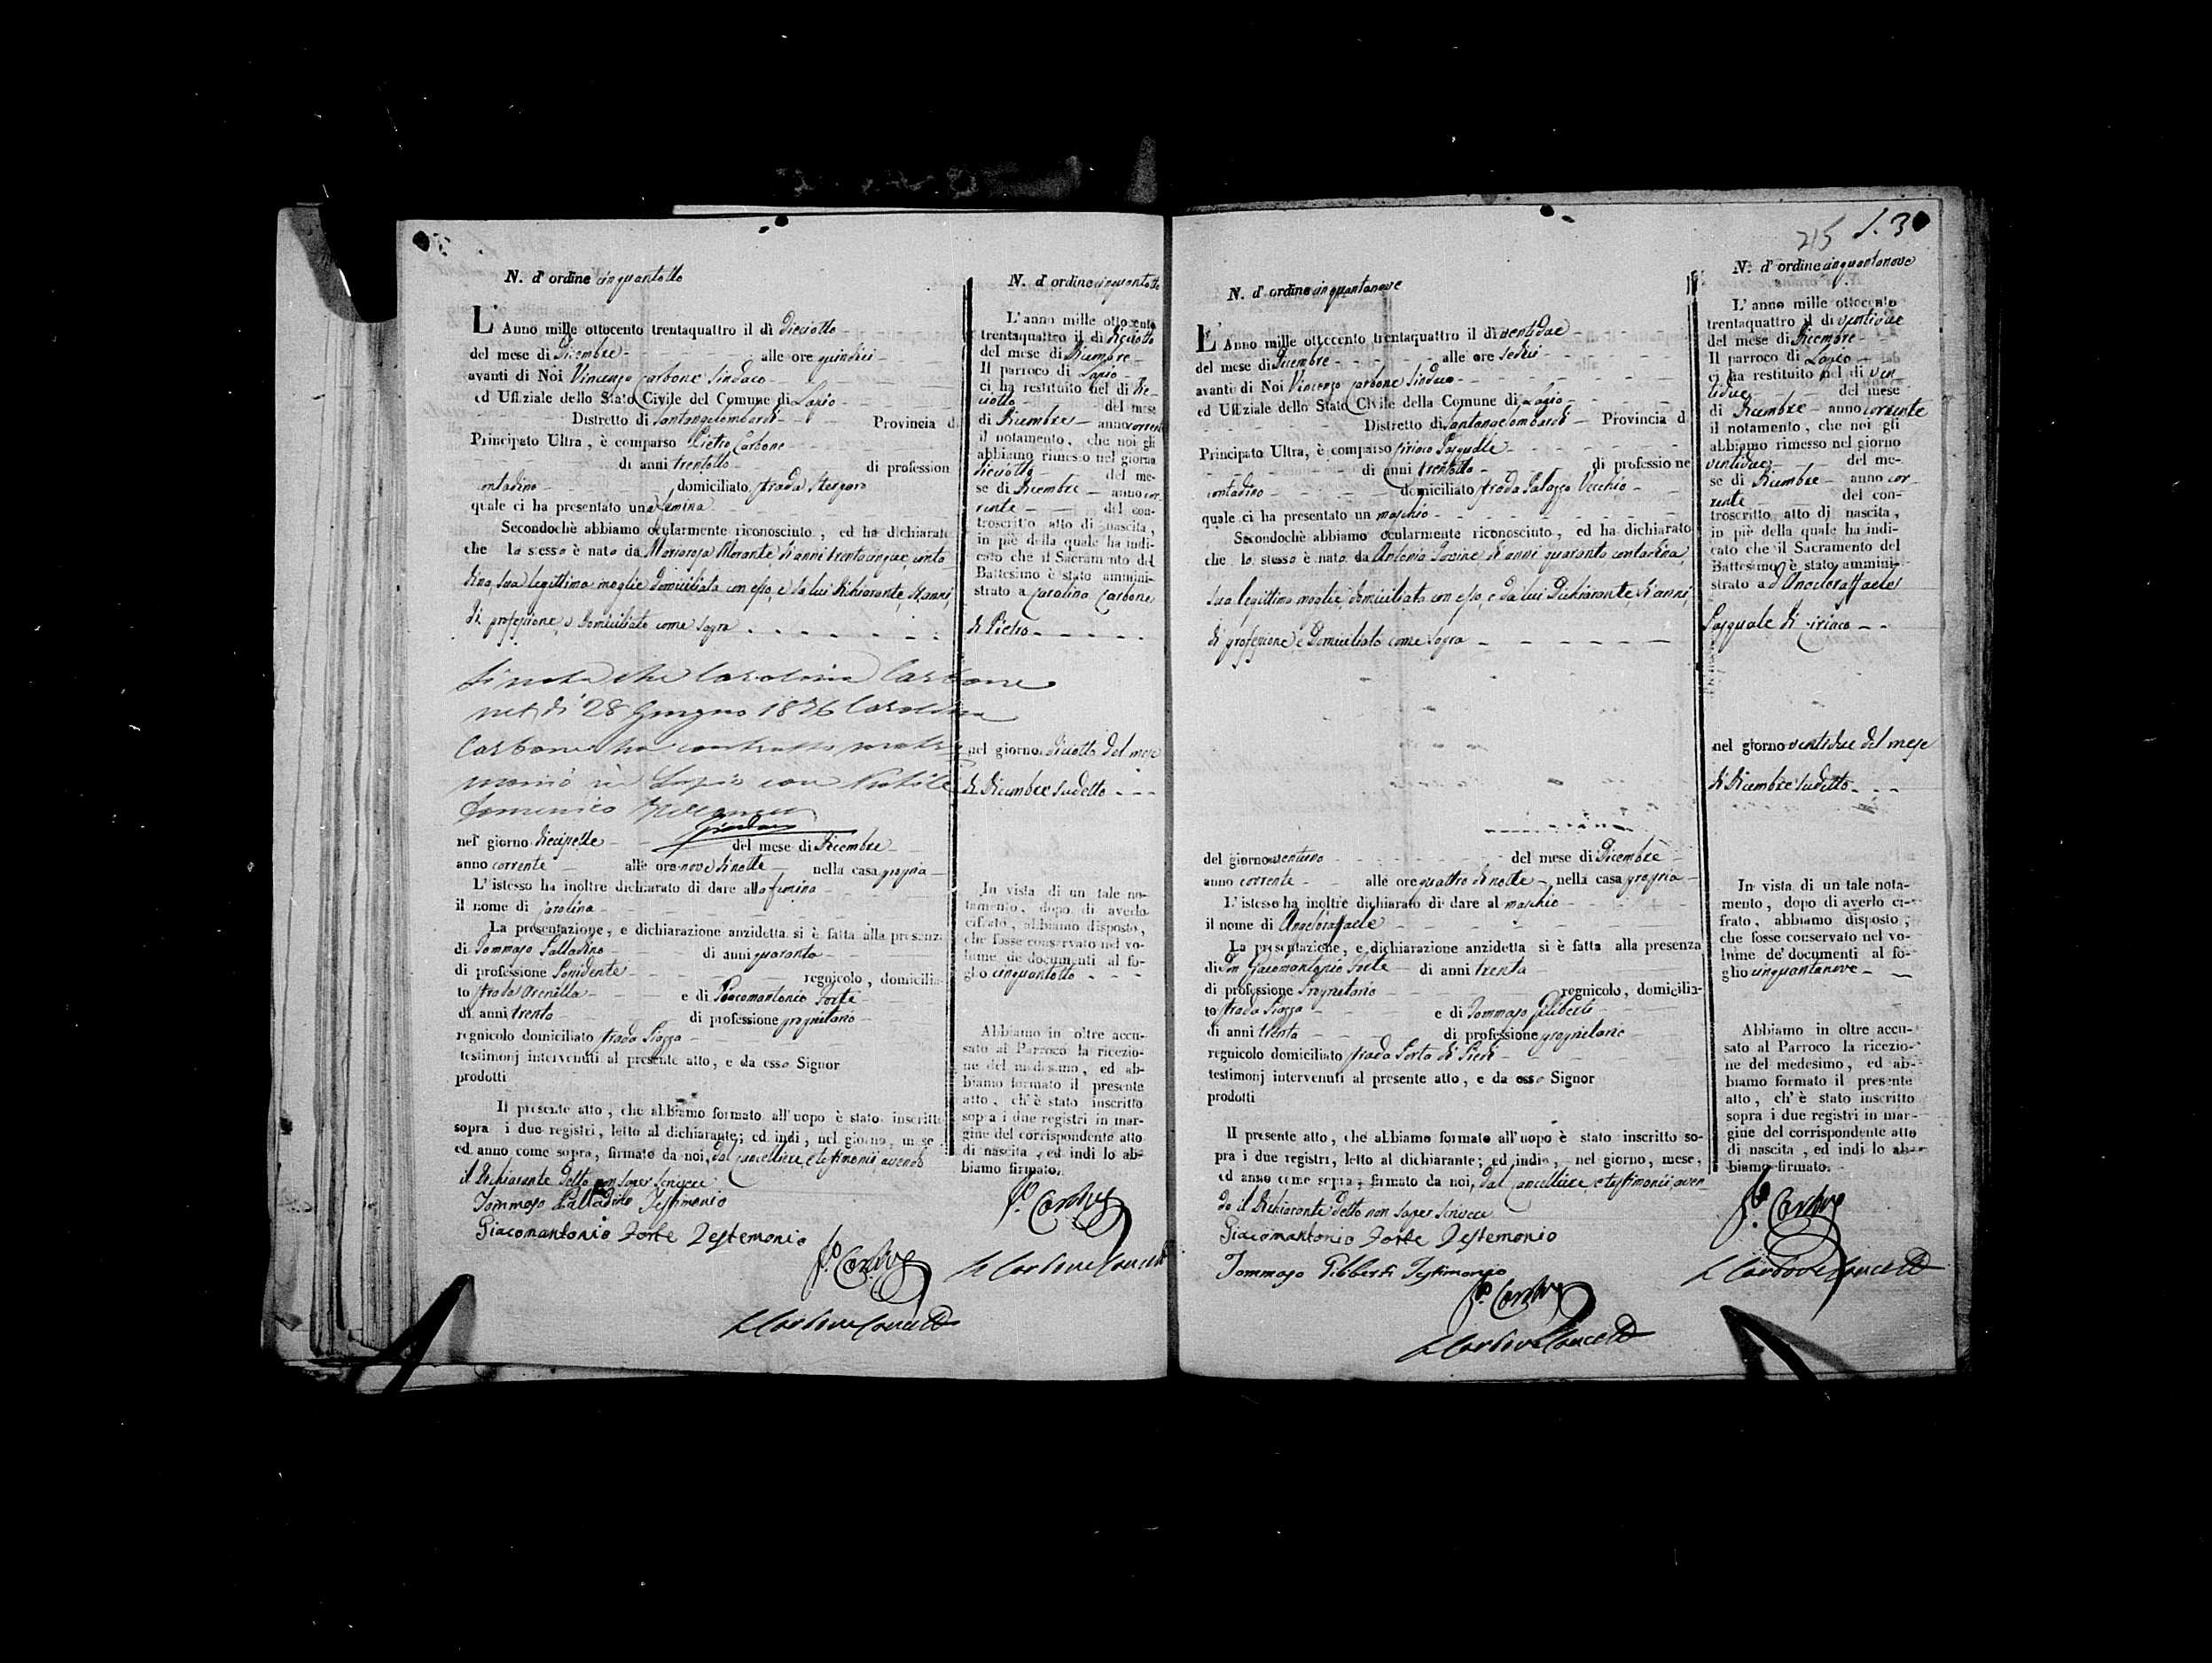 N. d'ordine cinquantotto
L'Anno mille ottocento trentaquattro il dì Dieciotto
del mese di Dicembre alle ore quindici
avanti di Noi Vincenzo Carbone Sindaco
ed Uffiziale dello Stato Civile del Comune di Lapio
Distretto di Santangelombardi Provincia d
Principato Ultra, è comparso Pietro Carbone
di anni trentotto di profession
ontadino domiciliato strada
quale ci ha presentato una femina
Secondochè abbiamo ocularmente riconosciuto, ed ha dichiarato
che la stessa è nata da Mariarosa Morante di anni trentacinque, conta-
dina, sua legittima moglie domiciliata con esso, e da lui Dichiarante, di anni,
di professione, e Domiciliato come sopra
Si nota che Carolina Carbone
nel dì 28 Giugno 1876 Carolina
Carbone ha contratto matri-
monio in Lapio con
Domenico
nel giorno Diecisette del mese di Dicembre
anno corrente alle ore nove di notte nella casa propria
L'istesso ha inoltre dichiarato di dare alla femina
il nome di Carolina
La presentazione, e dichiarazione anzidetta si è fatta alla presenza
di Tommaso Palladino di anni quaranta
di professione regnicolo, domicilia-
to strada Arenella e di Giacomantonio Forte
di anni trenta di professione proprietario
regnicolo domiciliato strada Piazza
testimonj intervenuti al presente atto, e da esso Signor
prodotti
Il presente atto, che abbiamo formato all'uopo è stato inscritto
sopra i due registri, letto al dichiarante; ed indi, nel giorno, mese
ed anno come sopra, firmato da noi, dal Cancelliere, e testimonii, avendo
il Dichiarante detto non saper scrivere
Tommaso Palladino Testimonio
Giacomantonio Forte Testemonio
N. d'ordine cinquantotto
L'anno mille ottocento
trentaquattro il dì Dieciotto
del mese di Dicembre
Il parroco di Lapio
ci ha restituito nel dì Die-
ciotto del mese
di Dicembre anno corrent
il notamento, che noi gli
abbiamo rimesso nel giorno
Dieciotto del me-
se di Dicembre anno cor-
rente del con-
troscritto atto di nascita,
in piè della quale ha indi-
cato che il Sacramento del
Battesimo è stato ammini-
strato a Carolina Carbone
di Pietro
nel giorno dieciotto del mese
di Dicembre sudetto
In vista di un tale no-
tamento, dopo di averlo
cifrato, abbiamo disposto,
che fosse conservato nel vo-
lume de' documenti al fo-
glio cinquantotto
Abbiamo in oltre accu-
sato al Parroco la ricezio-
ne del medesimo, ed ab-
biamo formato il presente
atto, ch'è stato inscritto
sopra i due registri in mar-
gine del corrispondente atto
di nascita, ed indi lo ab-
biamo firmato.
215
N. d'ordine cinquantanove
L'Anno mille ottocento trentaquattro il dì ventidue
del mese di Dicembre alle ore sedici
avanti di Noi Vincenzo Carbone Sindaco
ed Uffiziale dello Stato Civile della Comune di Lapio
Distretto di Santangelombardi Provincia d
Principato Ultra, è comparso Ciriaco Pasqualle
di anni trentotto di professione
contadino domiciliato strada Palazzo Vecchio
quale ci ha presentato un maschio
Secondochè abbiamo ocularmente riconosciuto, ed ha dichiarato
che lo stesso è nato da Antonia Iovine di anni quaranta contadina,
sua legittima moglie, domiciliata con esso, e da lui Dichiarante, di anni,
di professione e Domiciliato come sopra
del giorno ventuno del mese di Dicembre
anno corrente alle ore quattro di notte nella casa propria
L'istesso ha inoltre dichiarato di dare al maschio
il nome di Angeloraffaele
La presentazione, e dichiarazione anzidetta si è fatta alla presenza
di Don Giacomantonio Forte di anni trenta
di professione Proprietario regnicolo, domicilia-
to strada Piazza e di Tommaso Piliberti
di anni trenta di professione proprietario
regnicolo domiciliato strada Porta di Piedi
testimonj intervenuti al presente atto, e da esso Signor
prodotti
Il presente atto, che abbiamo formato all'uopo è stato inscritto so-
pra i due registri, letto al dichiarante; ed indi, nel giorno, mese,
ed anno come sopra, firmato da noi, dal Cancelliere, e testimonii, aven-
do il Dichiarante detto non saper scrivere
Giacomantonio Forte Testemonio
Tommaso Piliberti Testimonio
N. d'ordine cinquantanove
L'anno mille ottocento
trentaquattro il dì ventidue
del mese di Dicembre
Il parroco di Lapio
ci ha restituito nel dì ven
tidue del mese
di Dicembre anno corrente
il notamento, che noi gli
abbiamo rimesso nel giorno
ventidue del me-
se di Dicembre anno cor-
rente del con-
troscritto atto di nascita,
in piè della quale ha indi-
cato che il Sacramento del
Battesimo è stato ammini-
strato a D'Angeloraffaele
Pasquale di Ciriaco
nel giorno ventidue del mese
di Dicembre sudetto
In vista di un tale nota-
mento, dopo di averlo ci-
frato, abbiamo disposto,
che fosse conservato nel vo-
lume de' documenti al fo-
glio cinquantanove
Abbiamo in oltre accu-
sato al Parroco la ricezio-
ne del medesimo, ed ab-
biamo formato il presente
atto, ch'è stato inscritto
sopra i due registri in mar-
gine del corrispondente atto
di nascita, ed indi lo ab-
biamo firmato.